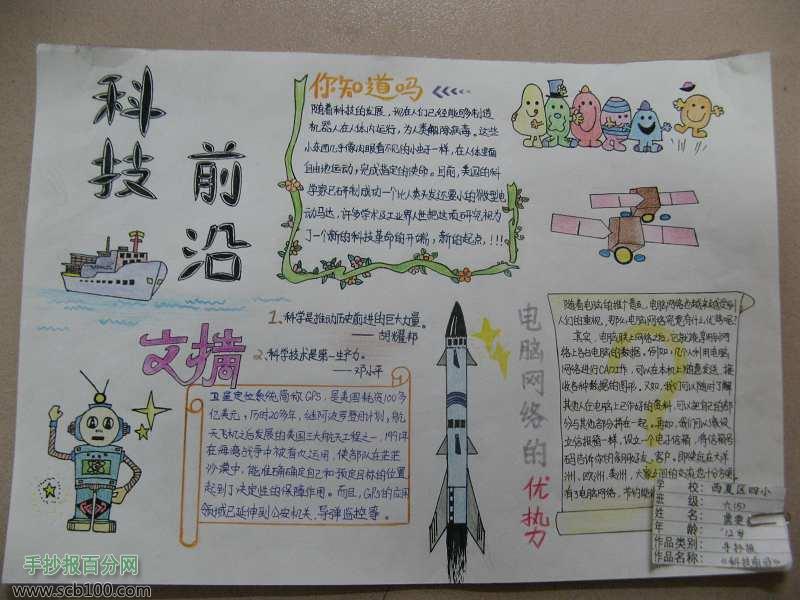 科技
前沿
你知道吗
随着科技的发展，现在人们已经能够制造
机器人在人体内运行，为人类翻除病毒。这些
小东西几乎像肉眼看不见的小虫子一样，在人体里面
自由地运动，完成指定的使命。目前，美国的科
学家已研制成功一个比人类头发还要小的微型电
动马达，许多学术及工业界人世把这项研究视为
了一个新的科技革命的开端，新的起点，!!!
文摘
1、科学是推动历史前进的巨大力量。
——胡耀邦
2、科学技术是第一生产力。
——邓小平
卫星定位系统简称GPS，是美国耗资100多
亿美元，历时20多年，继阿波罗登月计划，航
天飞机之后发展的美国三大航天工程之一，1991年
在海湾战争中被首次运用，使部队在茫茫
沙漠中，能准确确定自己和预定目标的位置
起到了决定性的保障作用。而且，GPS的应用
领域已延伸到公安机关、导弹监控等。
电脑网络的优势力
随着电脑的推广普及，电脑网络也越来越受到
人们的重视，那么，电脑网络究竟有什么优势呢？
其实，电脑联上网络之后，它就能享用到网
络上各台电脑的数据。例如，几个人利用电脑
网络进行CAD工作，可以在本机上随意发送、接
收各种数据的图形。又如，我们可以随时了解
其他人在电脑上已作好的资料，可以把自己的部
分与其他部分拼在一起。再如，我们可以像设
立信报箱一样，设立一个电子信箱，将信箱号
码告诉你的亲朋好友、客户。即使他在大洋
洲、欧洲、美洲，大家之间的交流也十分方便。
有了电脑网络，节约能
学校：西夏区四小
班级：六(5)
姓名：
年龄：12岁
作品类别：手抄报
作品名称：《科技前沿》
手抄报百分网
www.scb100.com